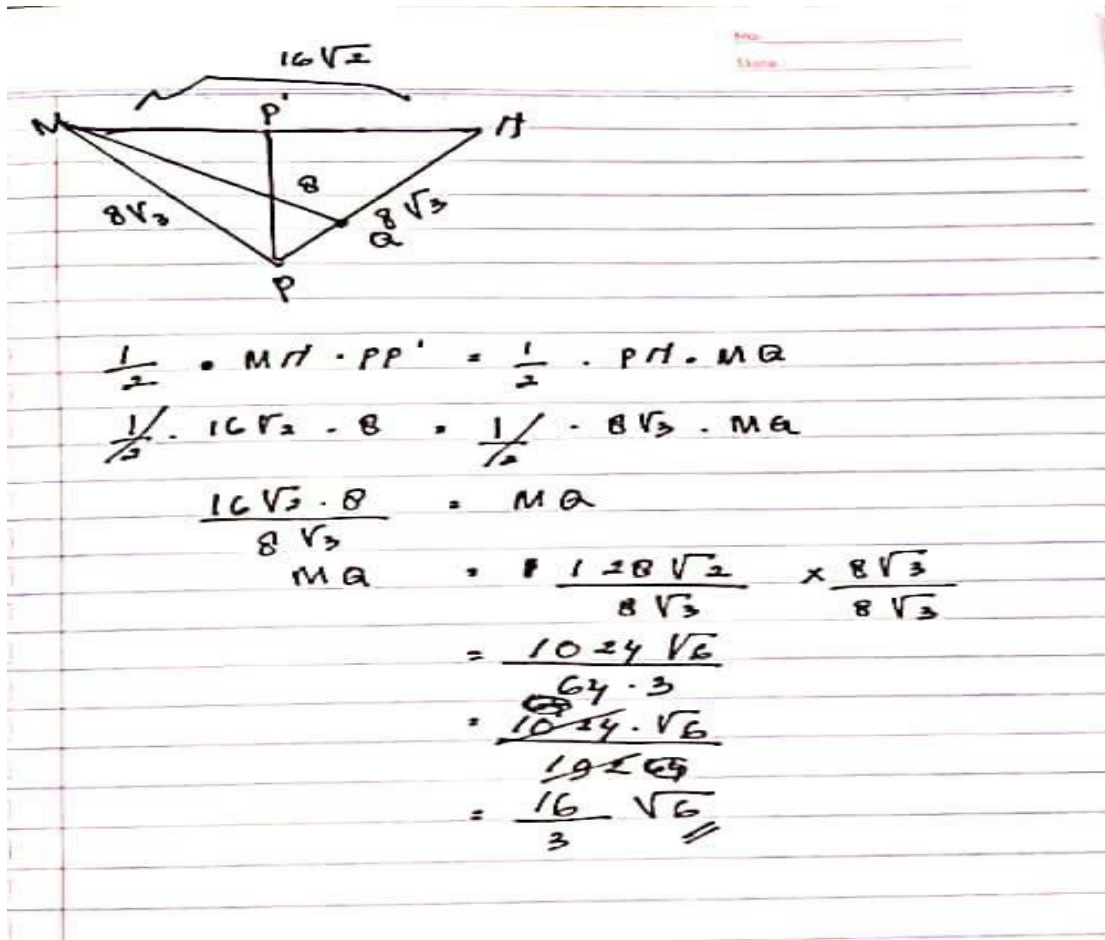 No
Date
16√2
M P' H
8
8√3 8√3
Q
P
1/2 · MH · PP' = 1/2 · PH · MQ
1/2 · 16√2 · 8 = 1/2 · 8√3 · MQ
16√2 · 8 / 8√3 = MQ
MQ = 128√2 / 8√3 × 8√3 / 8√3
= 1024√6 / 64 · 3
= 1024 · √6 / 192
= 16/3 √6